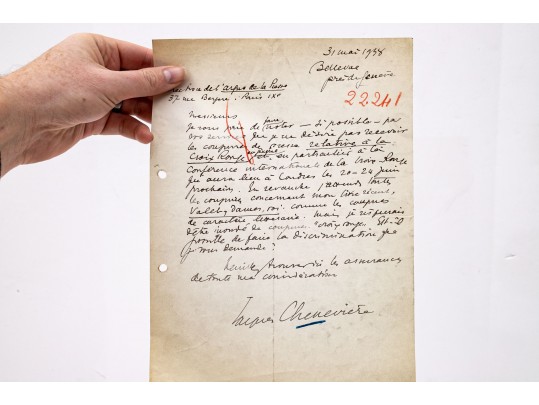 31 mai 1938
Bellevue
près de Genève
de l'argus de la Presse
37 rue Bergère. Paris IXe
22241
Messieurs
Je vous prie de faire noter – si possible – par
vos services que je ne désire pas recevoir
les coupures de presse relative à la
Croix Rouge et en particulier à la
Conférence internationale de la Croix Rouge
qui aura lieu à Londres les 20-24 juin
prochains. En revanche j'accepte toutes
les coupures concernant mon livre récent,
Valet, dames, roi, comme les coupures
de caractère littéraire. Mais je
être inondé de coupures "croix rouge. Est-il
possible de faire la discrimination que
je vous demande?
Veuillez trouver ici les assurances
de toute ma considération
Jacques Chenevière